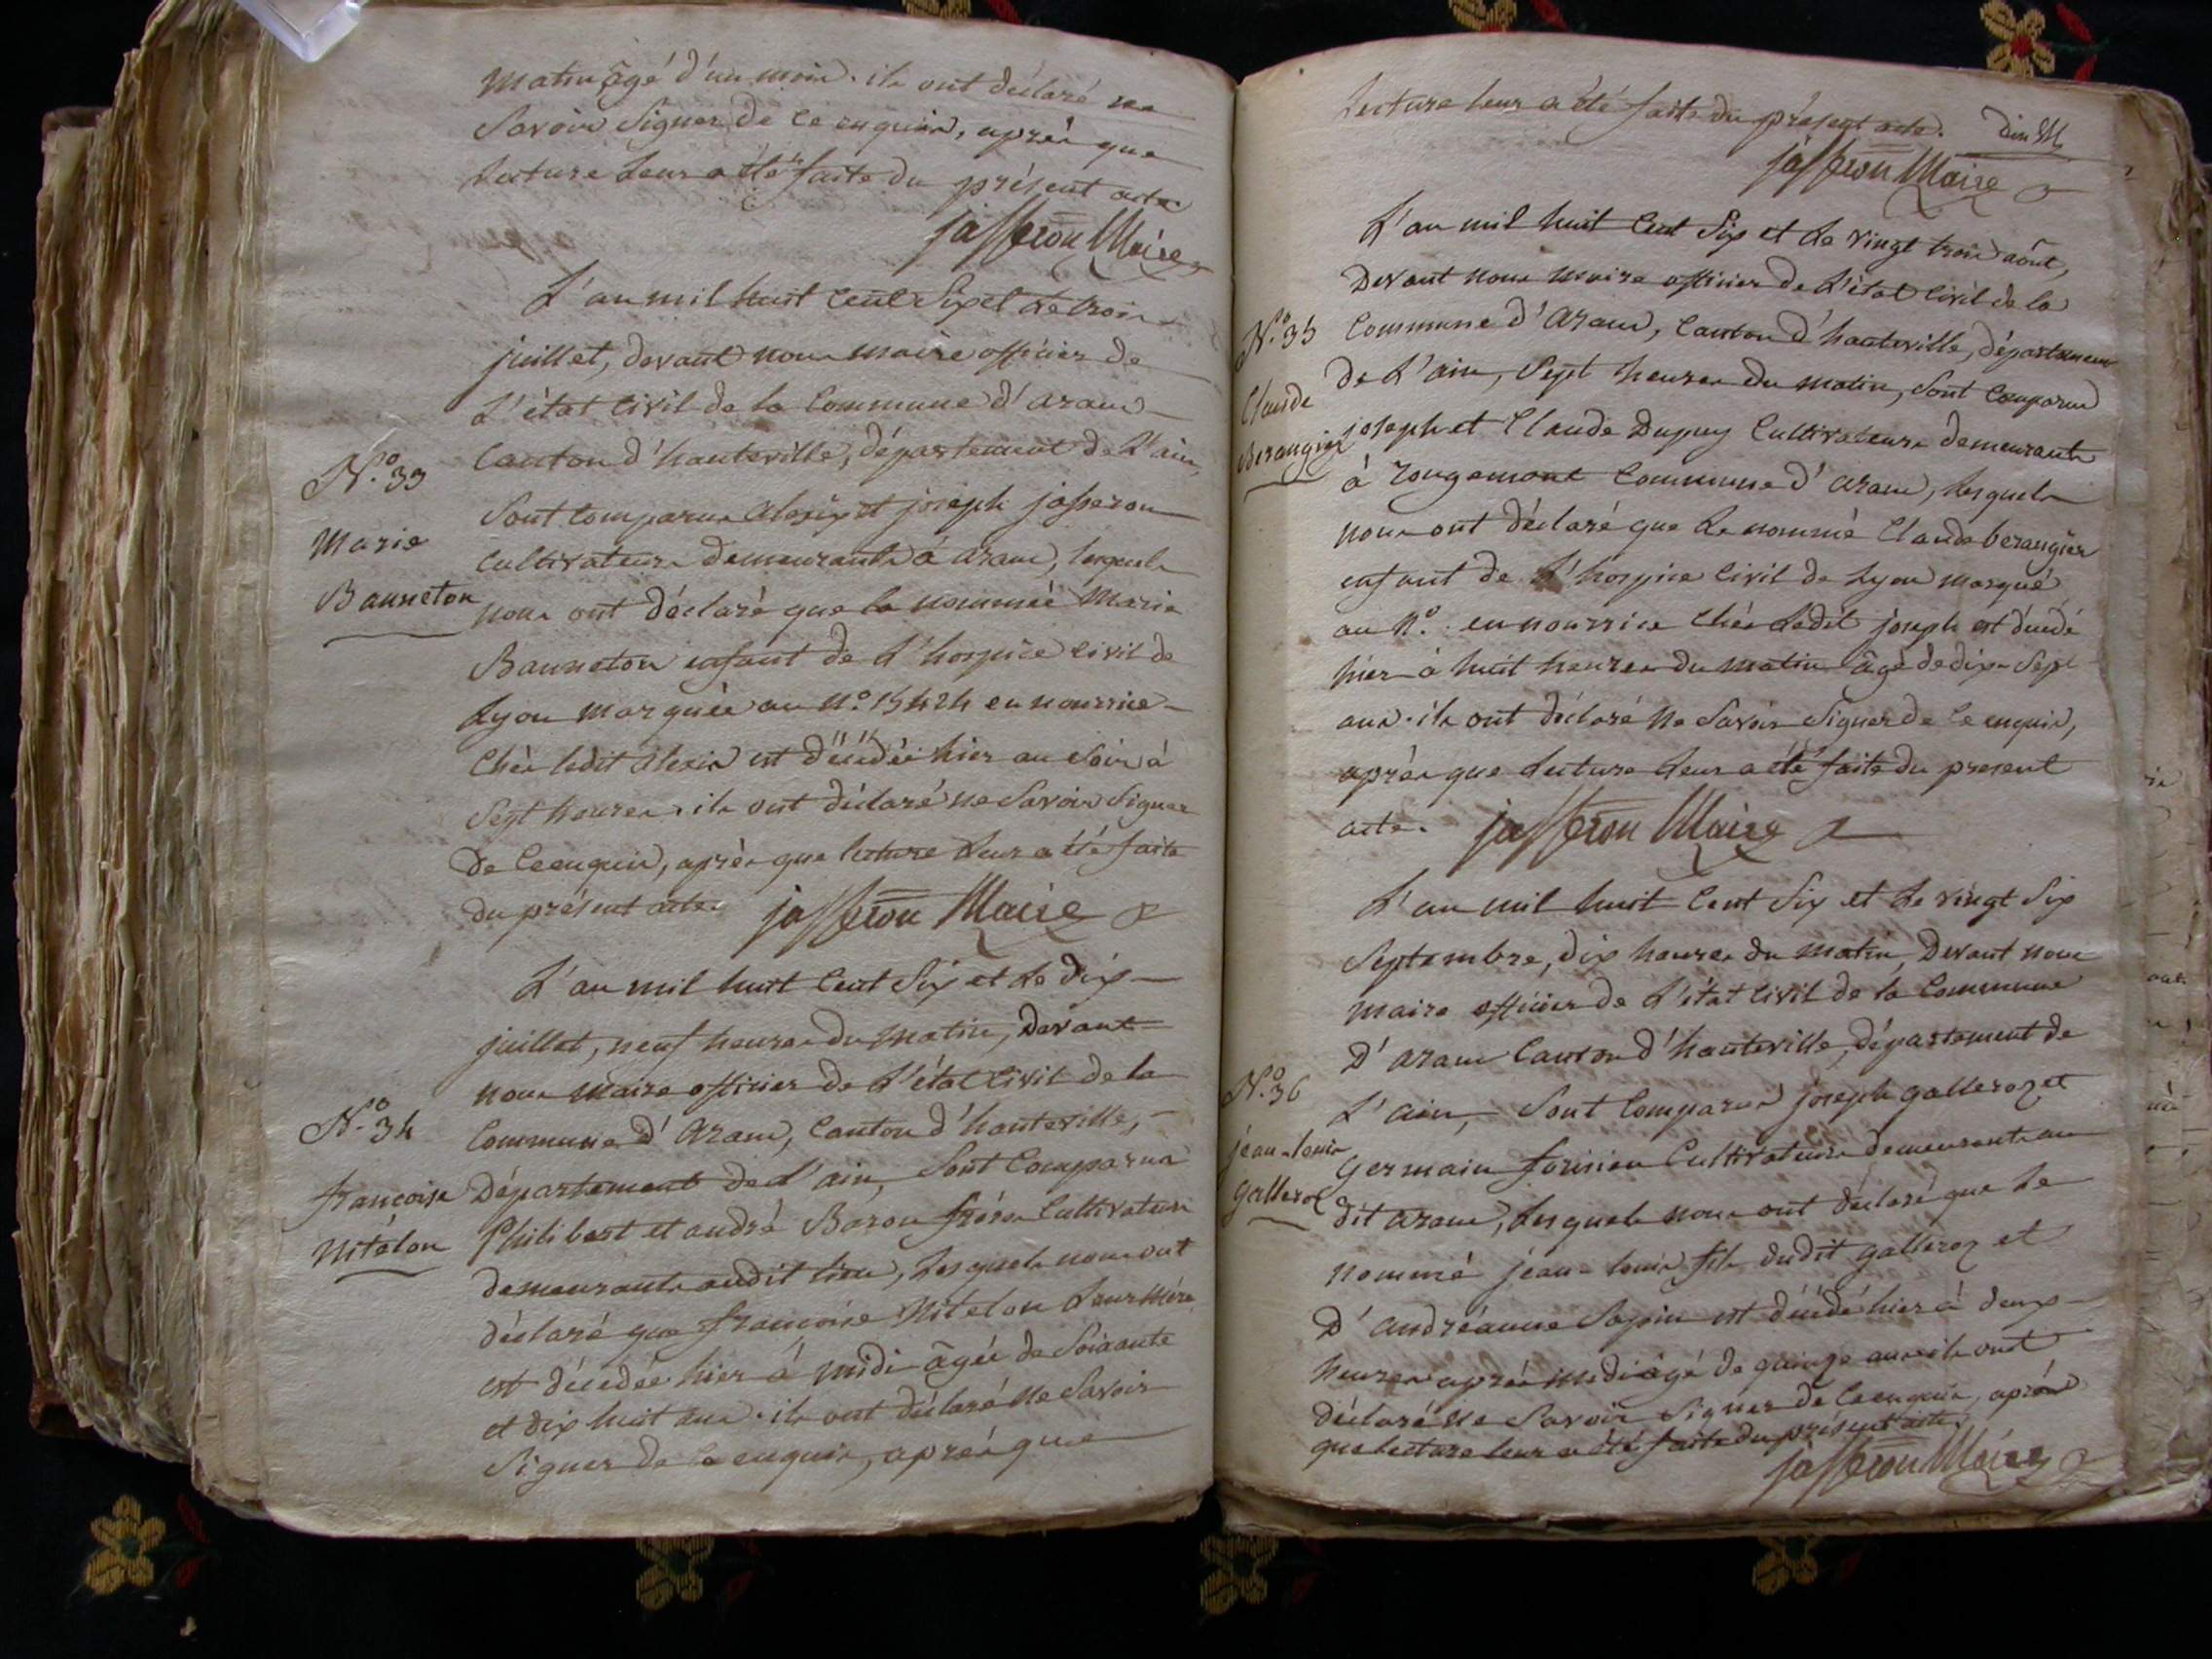 matin âgé d'un mois. ils ont déclaré ne
Savoir Signer de ce enquis, après que
Lecture Leur a été faite du présent acte
jasseron Maire
L'an mil huit Cent Six et Le trois
juillet, devant nous maire officier de
L'état Civil de la Commune d'aranc
Canton d'hauteville, département de L'ain,
N.º 33
Marie
Banneton
Sont Comparus alexis et joseph jasseron
Cultivateurs demeurants à aranc, lesquels
nous ont déclaré que la nommée Marie
Banneton enfant de L'hospice Civil de
Lyon marquée au n.º 15424 en nourrice
Chés ledit alexis est décédée hier au Soir à
Sept heures. ils ont déclaré ne Savoir Signer
de Ce enquis, après que lecture Leur a été faite
du présent acte. jasseron Maire
L'an mil huit Cent Six et Le dix
juillet, neuf heures du Matin, devant
nous maire officier de L'état Civil de la
N.º 34
françoise
Nitelon
Commune d'aranc, Canton d'hauteville,
Département de L'ain, Sont Comparus
Philibert et andré Baron frères Cultivateurs
demeurants audit lieu, Lesquels nous ont
déclaré que françoise Nitelon Leur Mère
est décédée hier à midi âgée de Soixante
et dix huit ans. ils ont déclaré ne Savoir
Signer de Ce enquis, après que
Lecture leur a été faite du présent acte.
jasseron Maire
L'an mil huit Cent Six et Le vingt trois août,
Devant nous maire officier de L'état Civil de la
N.º 35
Claude
Berangier
Commune d'aranc, Canton d'hauteville, département
de L'ain, Sept heures du matin, Sont Comparus
joseph et Claude Dupuy Cultivateurs demeurants
à rougemont Commune d'aranc, Lesquels
nous ont déclaré que Le nommé Claude berangier
enfant de L'hospice Civil de Lyon marqué
au N.º en nourrice Chés Ledit joseph est décédé
hier à huit heures du matin âgé de dix Sept
ans. ils ont déclaré ne Savoir Signer de Ce enquis,
après que Lecture Leur a été faite du present
acte. jasseron Maire
L'an mil huit Cent Six et Le vingt Six
Septembre, dix heures du matin, Devant nous
maire officier de L'état Civil de la Commune
D'aranc Canton d'hauteville, département de
N.º 36
jean-louis
galleroz
L'ain, Sont Comparus joseph galleroz et
germain Cultivateurs demeurants au
dit aranc, Lesquels nous ont déclaré que Le
nommé jean-louis fils dudit galleroz et
D'andréanne Sapin est décédé hier à deux
heures après midi âgé de quinze ans. ils ont
déclaré ne Savoir Signer de Ce enquis, après
que lecture leur a été faite du présent acte.
jasseron Maire